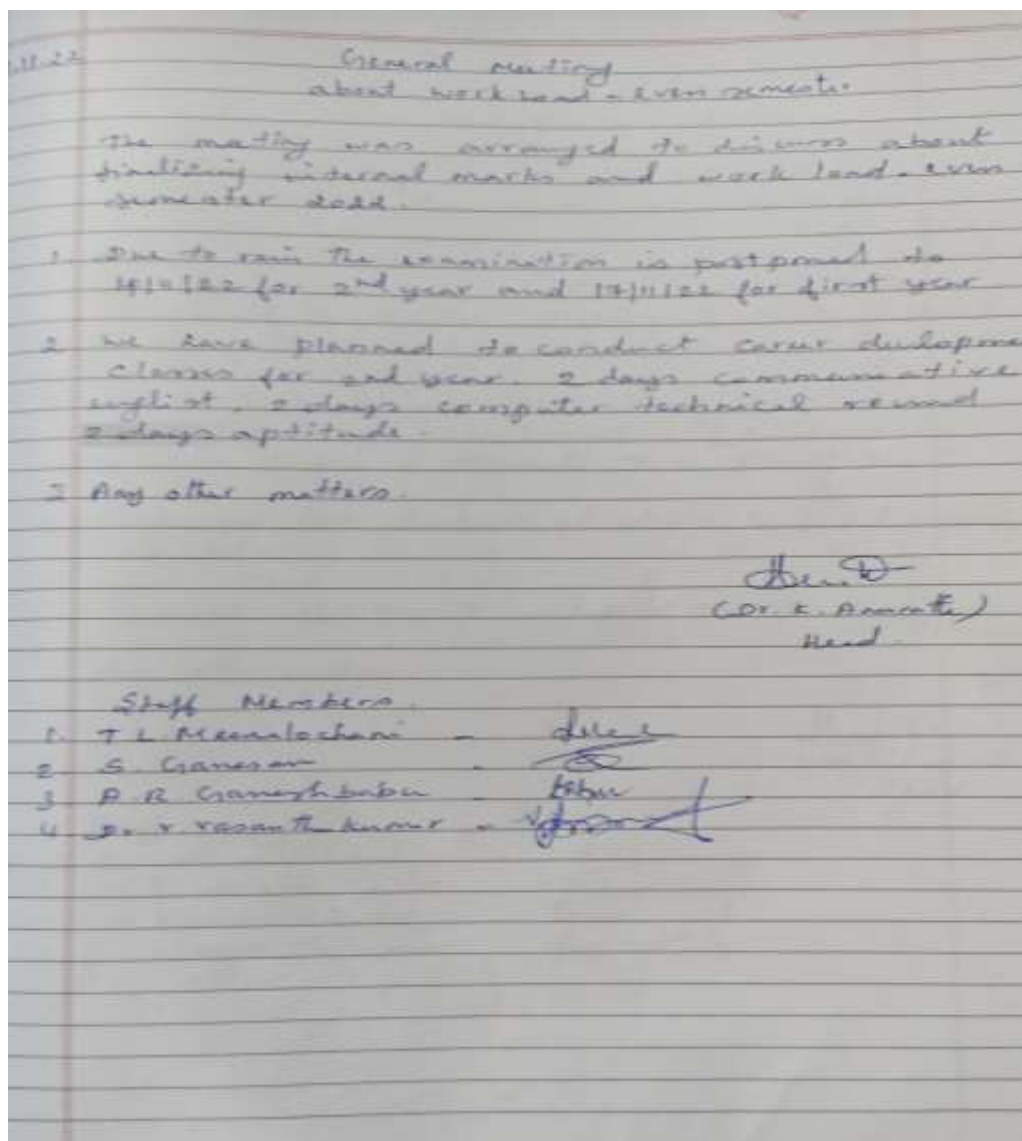 .11.22
General meeting
about work load - even semester
The meeting was arranged to discuss about
finalizing internal marks and work load - even
semester 2022.
1. Due to rain the examination is postponed to
for 2nd year and 17/11/22 for first year
2 we have planned to conduct career developme
classes for 2nd year. 2 days communicative
english. 2 days computer technical round
2 days aptitude.
3 Any other matters.
(Dr. K. )
Head.
Staff Members.
1. T L Meenalochani -
2 S. Ganesan -
3 A. R Ganesh babu -
4 Dr. V Vasanth kumar -